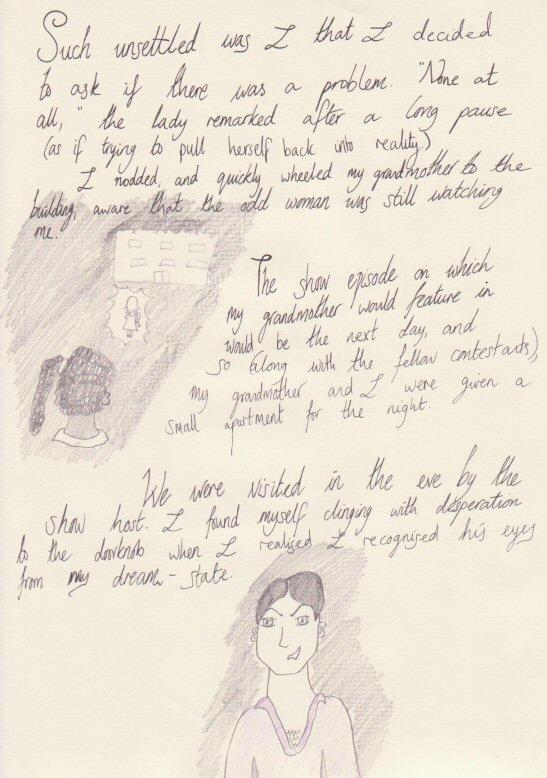 Such unsettled was I that I decided
to ask if there was a problem. "None at
all," the lady remarked after a long pause
(as if trying to pull herself back into reality.)
I nodded, and quickly wheeled my grandmother to the
building, aware that the odd woman was still watching
me.
The show episode on which
my grandmother would feature in
would be the next day, and
so (along with the fellow contestants),
my grandmother and I were given a
small apartment for the night.
We were visited in the eve by the
show host. I found myself clinging with desperation
to the doorknob when I realised I recognised his eyes
from my dream-state.